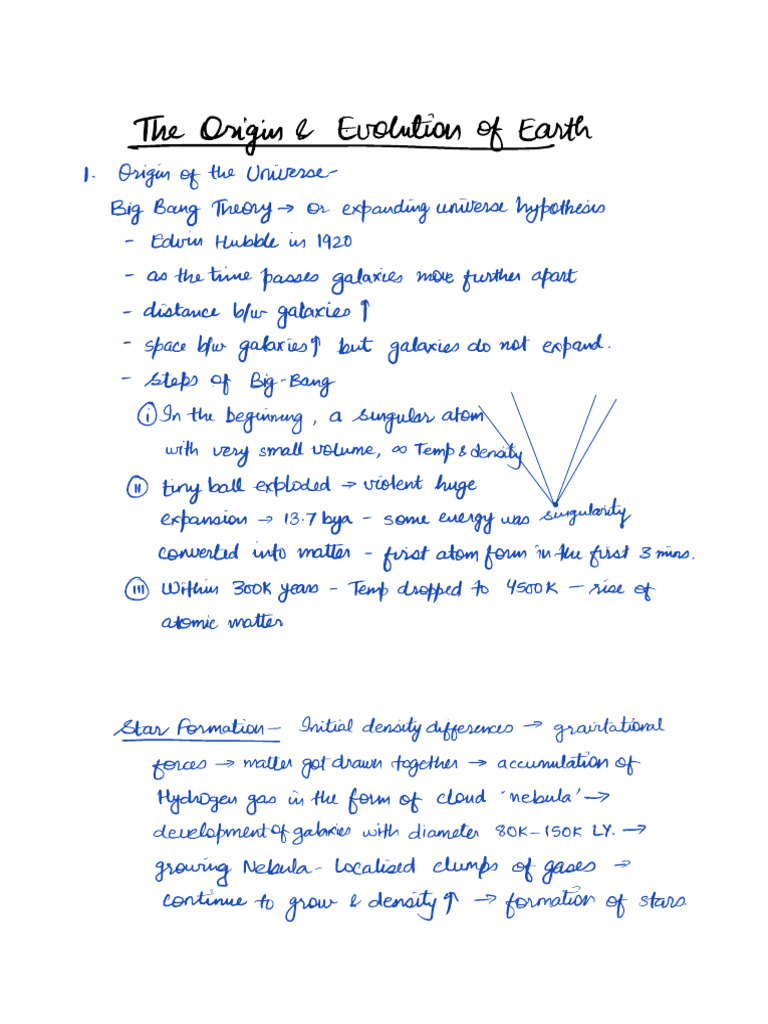 The Origin & Evolution of Earth
1. Origin of the Universe-
Big Bang Theory → or expanding universe hypothesis
- Edwin Hubble in 1920
- as the time passes galaxies move further apart
- distance b/w galaxies ↑
- space b/w galaxies ↑ but galaxies do not expand.
- Steps of Big-Bang
(i) In the beginning, a singular atom
with very small volume, ∞ Temp & density
(ii) tiny ball exploded → violent huge
expansion → 13.7 bya - some energy was
singularity
converted into matter - first atom form in the first 3 mins.
(iii) Within 300K years - Temp dropped to 4500K - rise of
atomic matter
Star Formation - Initial density differences → graivtational
forces → matter got drawn together → accumulation of
Hydrogen gas in the form of cloud 'nebula' →
development of galaxies with diameter 80K-150K LY. →
growing Nebula - Localised clumps of gases →
continue to grow & density ↑ → formation of stars.